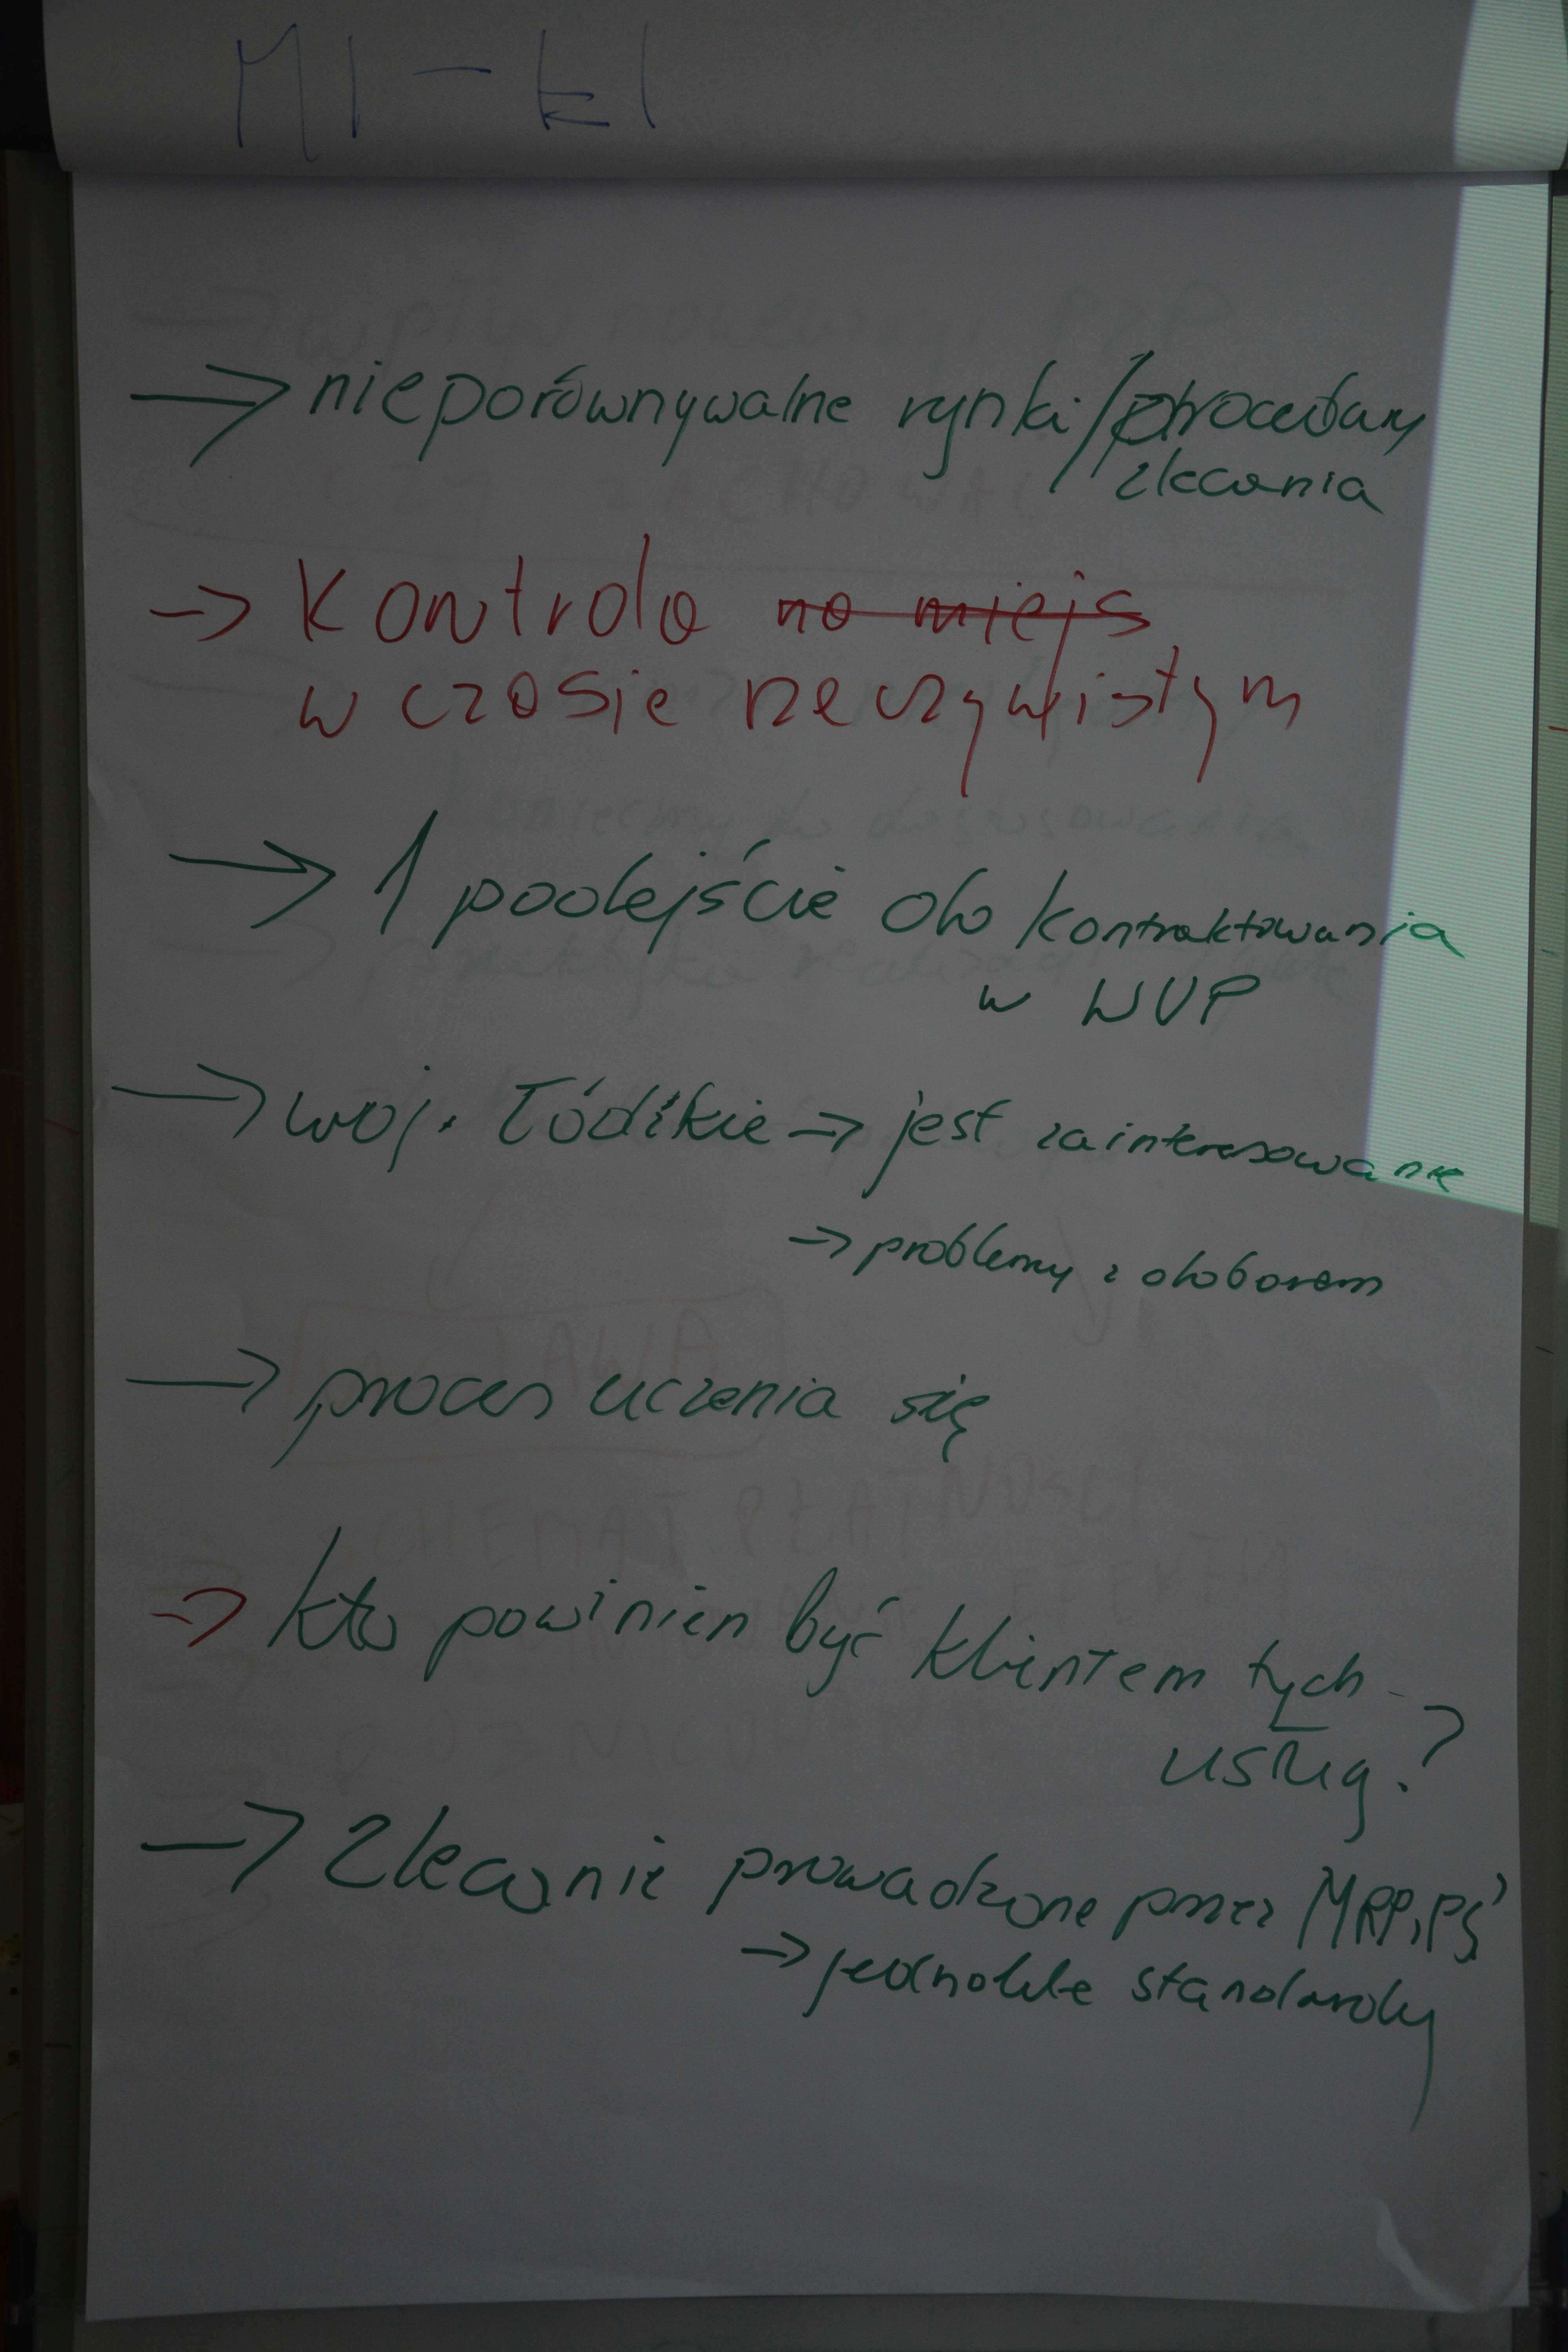 → nieporównywalne rynki/procedury
zlecania
→ Kontrola na miejs
w czasie rzeczywistym
→ 1 podejście do kontraktowania
w WUP
→ woj. Łódzkie → jest zainteresowanie
→ problemy z doborem
→ proces uczenia się
→ kto powinien być klientem tych
usług?
→ Zlecanie prowadzone przez MRPiPS
→ jednolite standardy